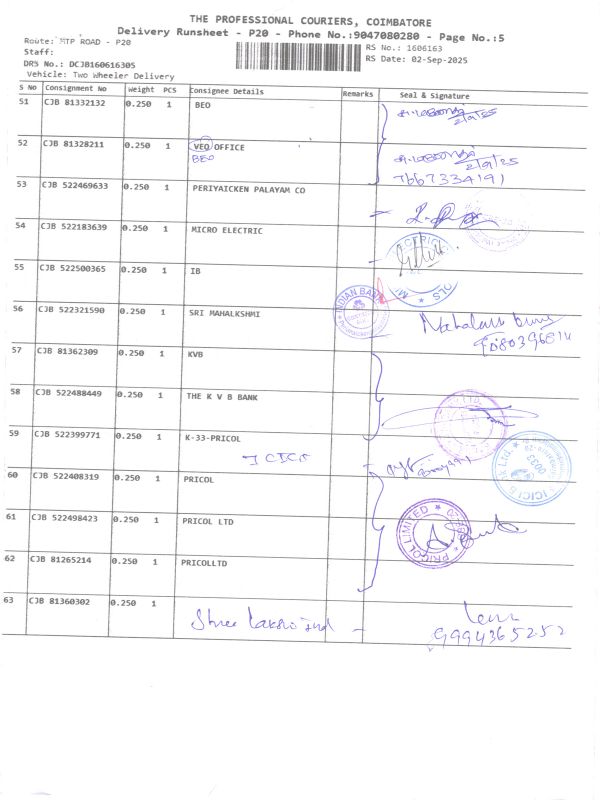 THE PROFESSIONAL COURIERS, COIMBATORE
Delivery Runsheet - P20 - Phone No.:9047080280 - Page No.:5
Route: MTP ROAD - P20
RS No.: 1606163
Staff:
RS Date: 02-Sep-2025
DRS No.: DCJB160616305
Vehicle: Two Wheeler Delivery
S No Consignment No Weight PCS Consignee Details Remarks Seal & Signature
51 CJB 81332132 0.250 1 BEO
2/9/25
52 CJB 81328211 0.250 1 VEO OFFICE
BEO
2/9/25
7667334191
53 CJB 522469633 0.250 1 PERIYAICKEN PALAYAM CO
54 CJB 522183639 0.250 1 MICRO ELECTRIC
55 CJB 522500365 0.250 1 IB
INDIAN BANK
56 CJB 522321590 0.250 1 SRI MAHALKSHMI
57 CJB 81362309 0.250 1 KVB
58 CJB 522488449 0.250 1 THE K V B BANK
59 CJB 522399771 0.250 1 K-33-PRICOL
ICICI
ICICI Bank Ltd.
60 CJB 522408319 0.250 1 PRICOL
61 CJB 522498423 0.250 1 PRICOL LTD
PRICOL LIMITED
62 CJB 81265214 0.250 1 PRICOLLTD
63 CJB 81360302 0.250 1 Shree Lakshmi Ind
9994365252